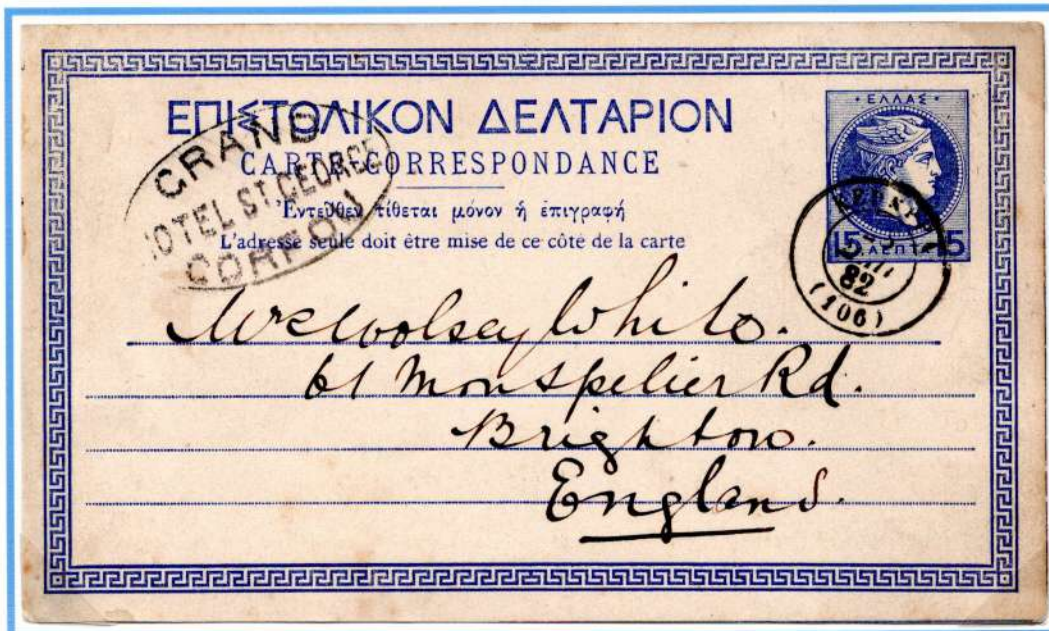 ΕΠΙΣΤΟΛΙΚΟΝ ΔΕΛΤΑΡΙΟΝ
CARTE-CORRESPONDANCE
Ἐντεῦθεν τίθεται μόνον ἡ ἐπιγραφή
L'adresse seule doit être mise de ce côté de la carte
GRAND
HOTEL ST. GEORGE
CORFOU
· ΕΛΛΑΣ ·
15 ΛΕΠΤΑ 15
82
(106)
Mrs Woolsey White.
61 Montpelier Rd.
Brighton.
England.